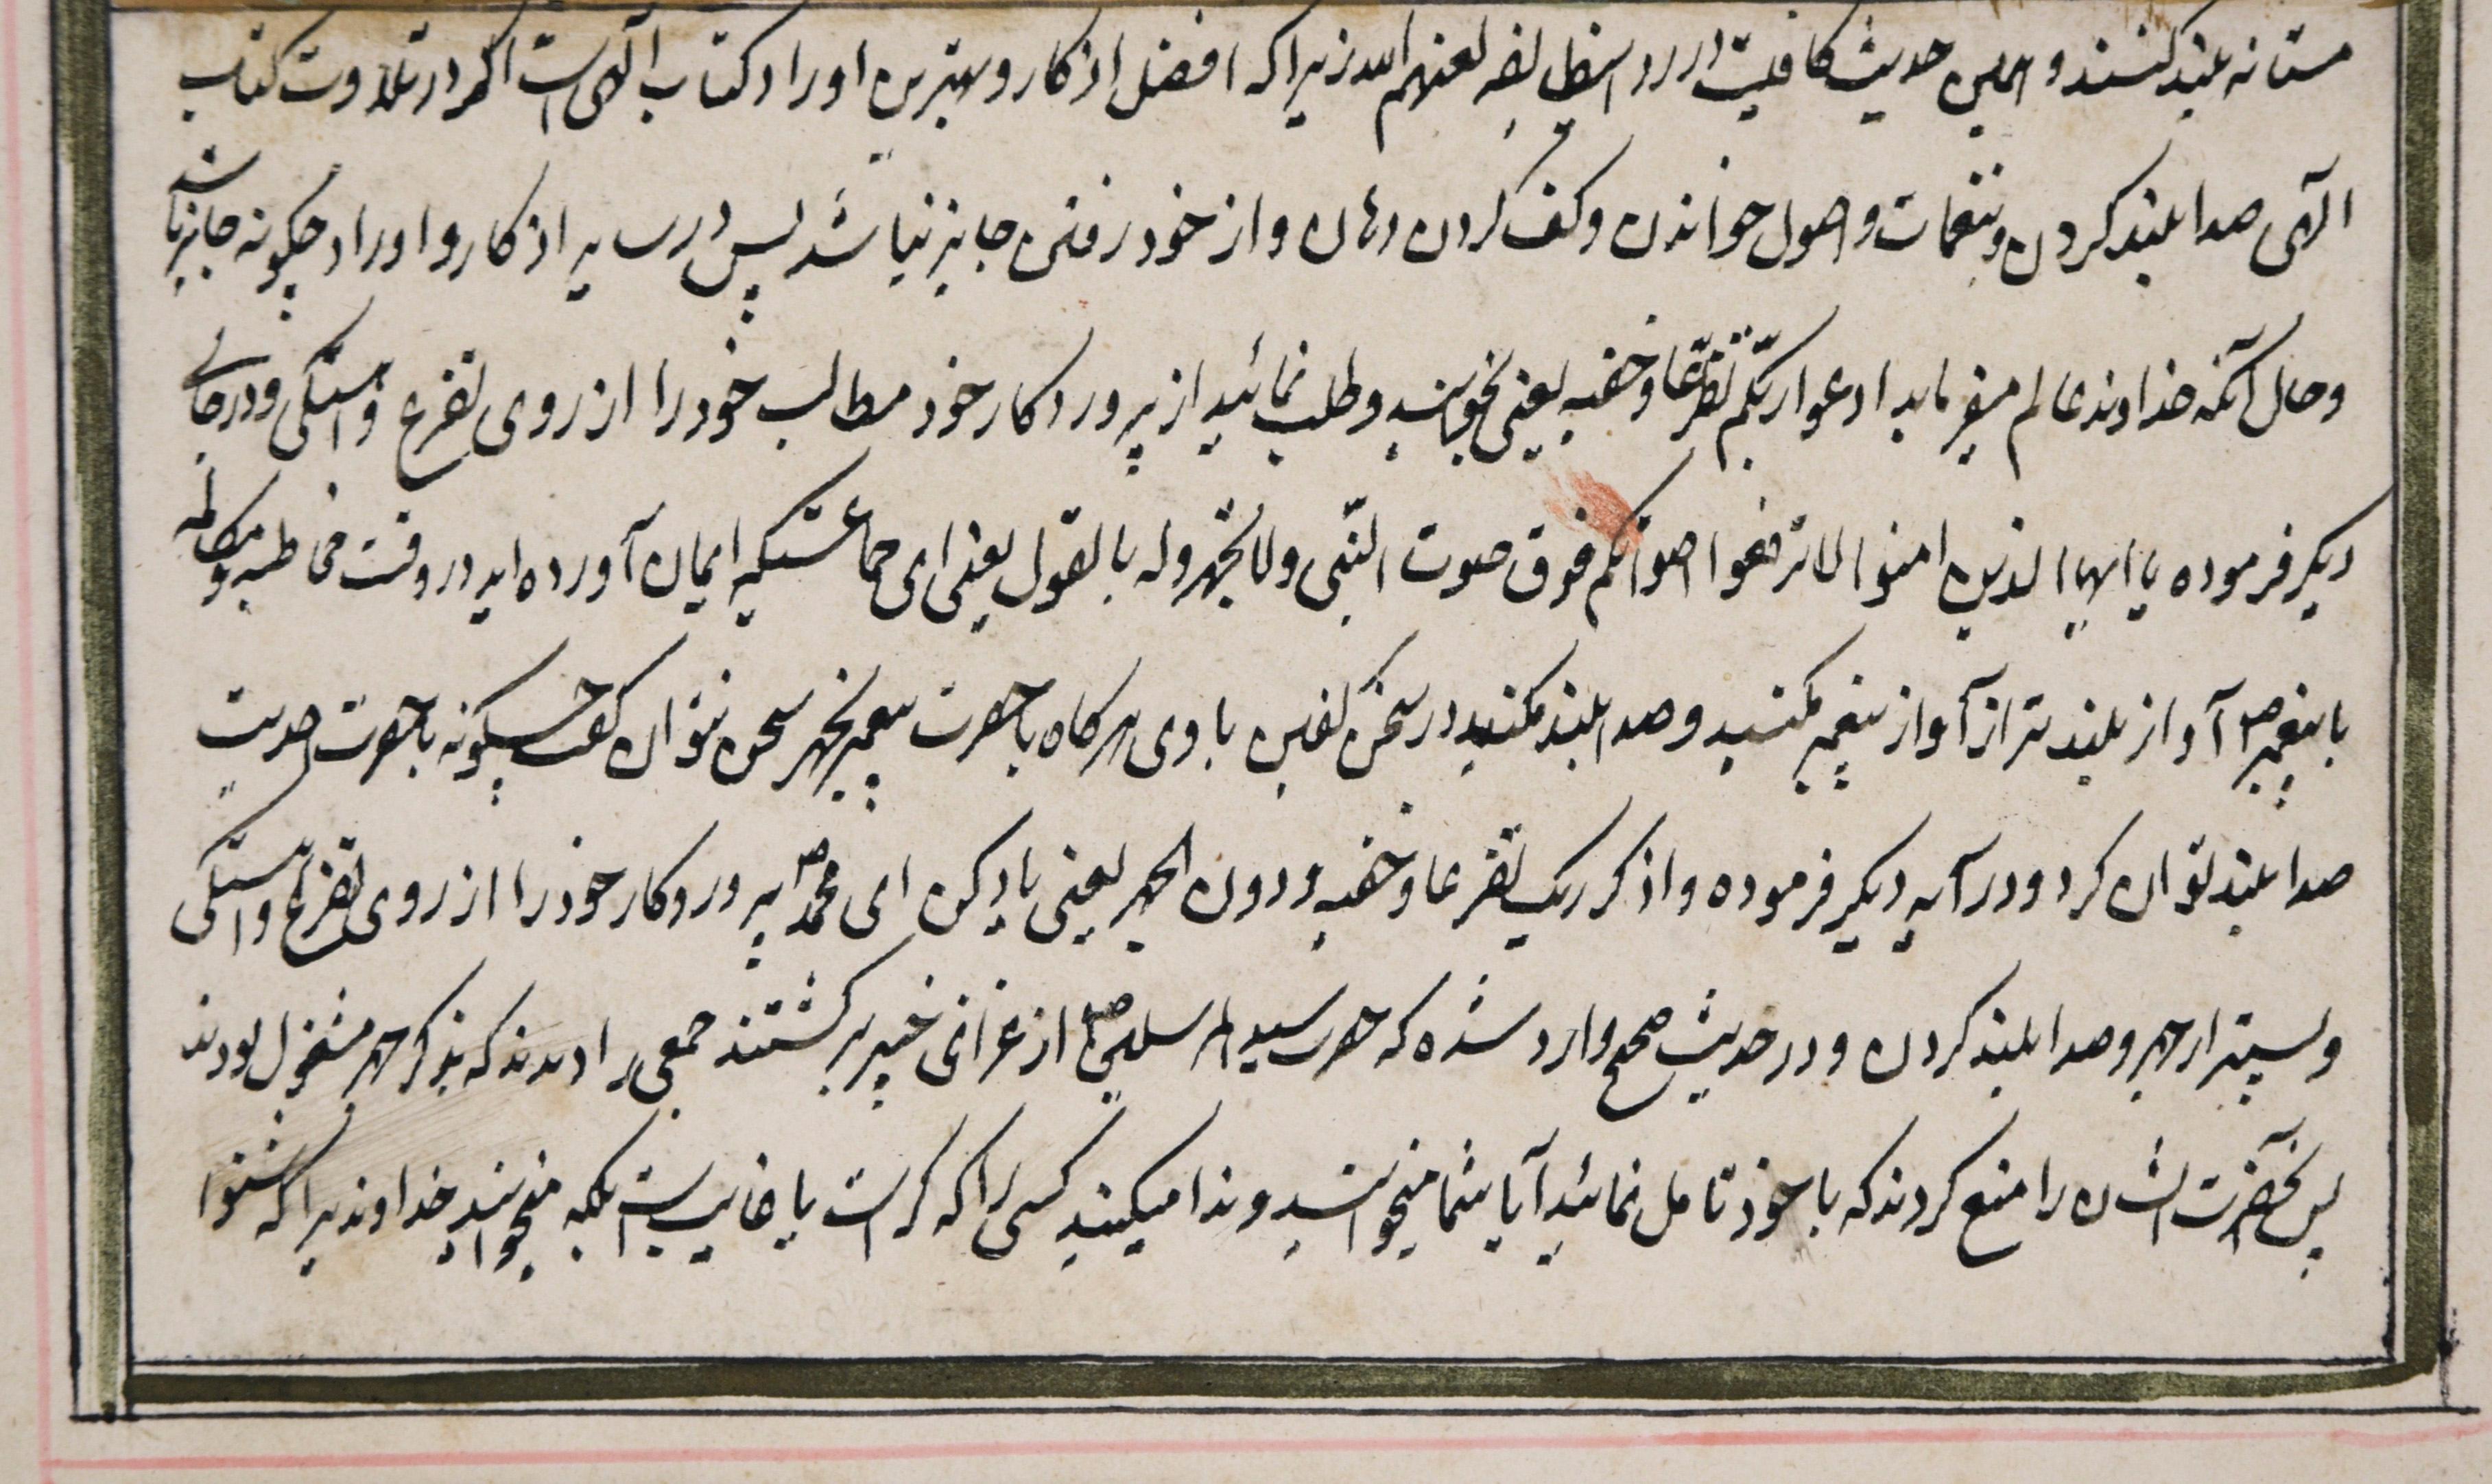 مستانه بلند کنند و همین حدیث کافیست در رد این طایفه لعنهم الله زیرا که افضل اذکار و بهترین اوراد کتاب آلهی است اکر در تلاوت کتاب
الهی صدا بلند کردن و بنغمات و اصول خواندن و کف کردن دهان و از خود رفتن جایز نباشد پس در سایر اذکار و اوراد چکونه جایز باشد
و حال آنکه خداوند عالم میفرماید ادعوا ربّکم تضرّعا و خفیه یعنی بخوانید و طلب نمائید از پروردکار خود مطالب خود را از روی تضرع و آهستکی و در جای
دیکر فرموده یا ایها الذین امنوا لا ترفعوا اصواتکم فوق صوت النّبی ولا تجهروا له بالقول یعنی ای جماعتیکه ایمان آورده اید در وقت مخاطبه و مکالمه
با پیغمبر ص آواز بلند تر از آواز پیغمبر مکنید و صدا بلند مکنید در سخن کفتن با وی هر کاه با حضرت پیغمبر بجهر سخن نتوان کفت چکونه با حضرت احدیت
صدا بلند توان کرد و در آیه دیکر فرموده و اذکر ربک تضرعا و خفیه و دون الجهر یعنی یاد کن ای محمد ص پروردکار خود را از روی تضرع و آهستکی
و پستتر از جهر و صدا بلند کردن و در حدیث صحیح وارد شده که حضرت سید المرسلین ص از غزای خیبر برکشتند جمعی را دیدند که بذکر جهر مشغول بودند
پس آنحضرت ایشان را منع کردند که با خود تامل نمائید آیا شما میخوانید و ندا میکنید کسی را که کر است یا غایب است بلکه میخوانید خداوندیرا که شنوا